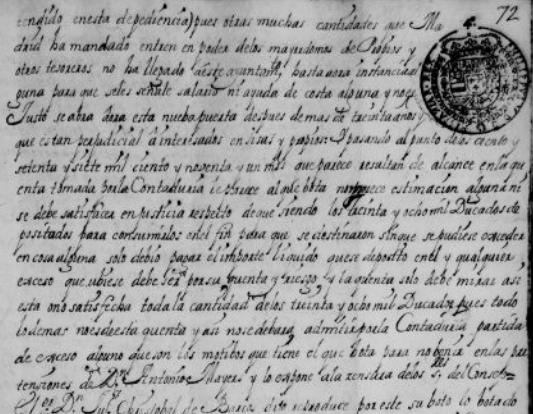 tendido en esta dependiencia) pues otras muchas cantidades que Ma 72
drid ha mandado entren en poder delos mayordomos de Propios y
otros tesoreros no ha llegado a este ayuntam.to hasta aora instancia al
guna para que seles señale salario ni ayuda de costa alguna y no es
Justo se abra aora esta nueba puerta despues demas de treinta años y
que es tan perjudicial a interesados en sisas y propios: Y pasando al punto delos ciento y
setenta y siete mil ciento y noventa y un mrs que parece resultan de alcance en la qu
enta tomada por la Contaduria se ofrece al que bota no merece estimacion alguna ni
se debe satisfacer en justicia respecto de que siendo los treinta y ocho mil Ducados de
positados para consumirlos en el fin para que se destinaron sin que se pudiese exceder
en cosa alguna solo debio pagar el importe liquido que se deposito en el y qualquier
exceso que ubiese debe ser por su quenta y riesgo, y la quenta solo debe mirar asi
esta o no satisfecha toda la cantidad delos treinta y ocho mil Ducados pues todo
lo demas no es de esta quenta y asi no se debera admitir por la Contaduria partida
de exceso alguno que son los motibos que tiene el que bota para no benir en las pre
tensiones de Dn Antonio Mayers y lo expone a la censura delos s.res del Consejo
El Sr. Dn. Christobal de dijo reproduce por este su boto lo botado